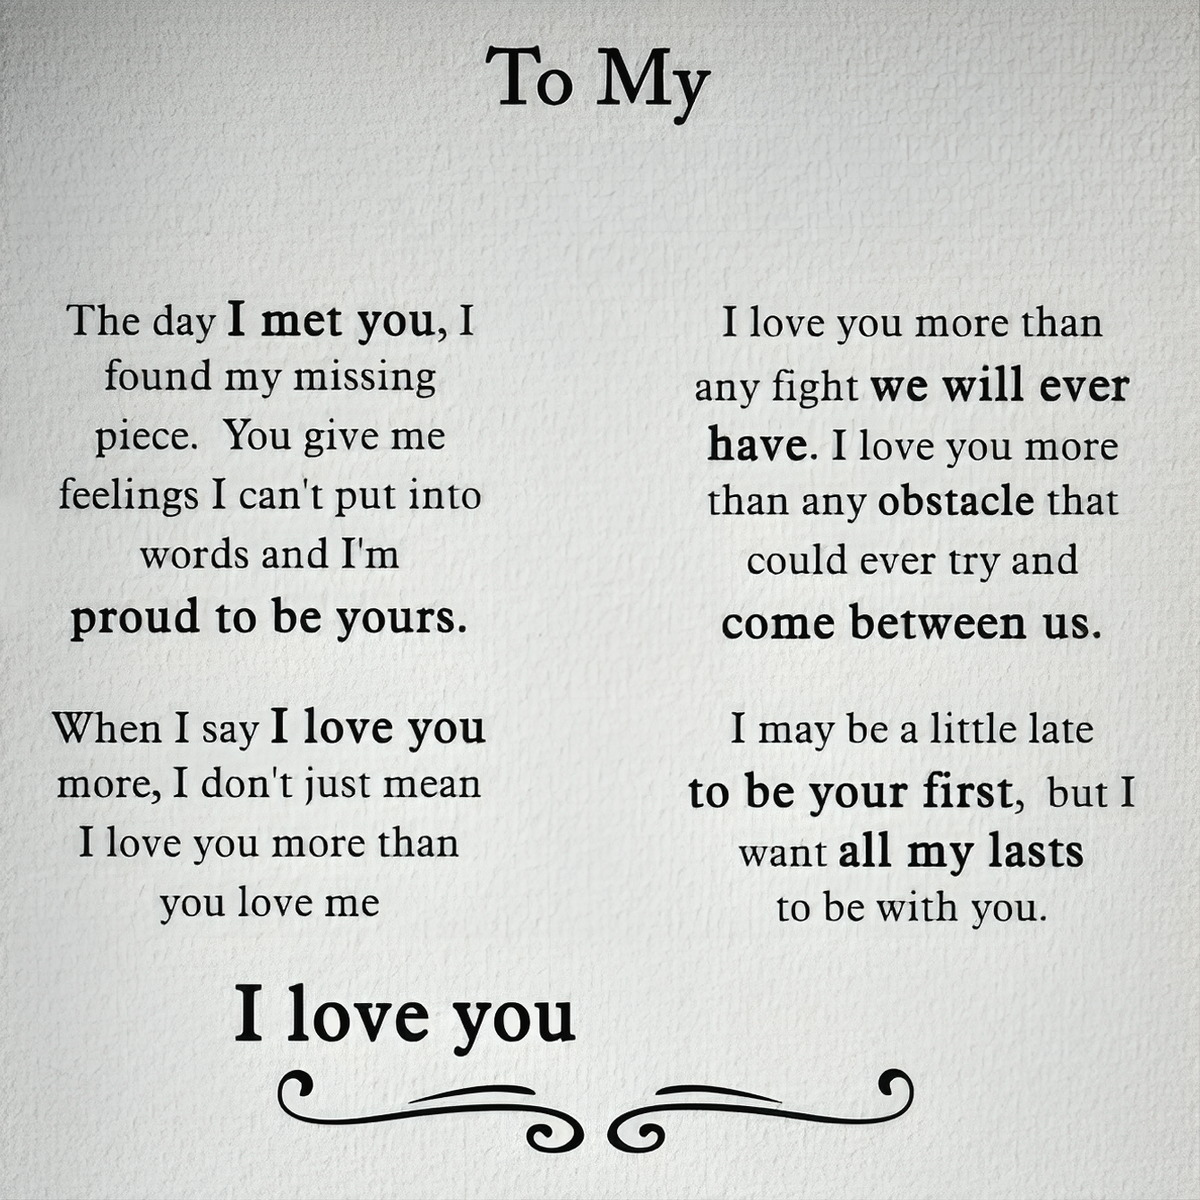 To My
The day I met you, I
found my missing
piece.  You give me
feelings I can't put into
words and I'm
proud to be yours.
When I say I love you
more, I don't just mean
I love you more than
you love me
I love you more than
any fight we will ever
have. I love you more
than any obstacle that
could ever try and
come between us.
I may be a little late
to be your first,  but I
want all my lasts
to be with you.
I love you